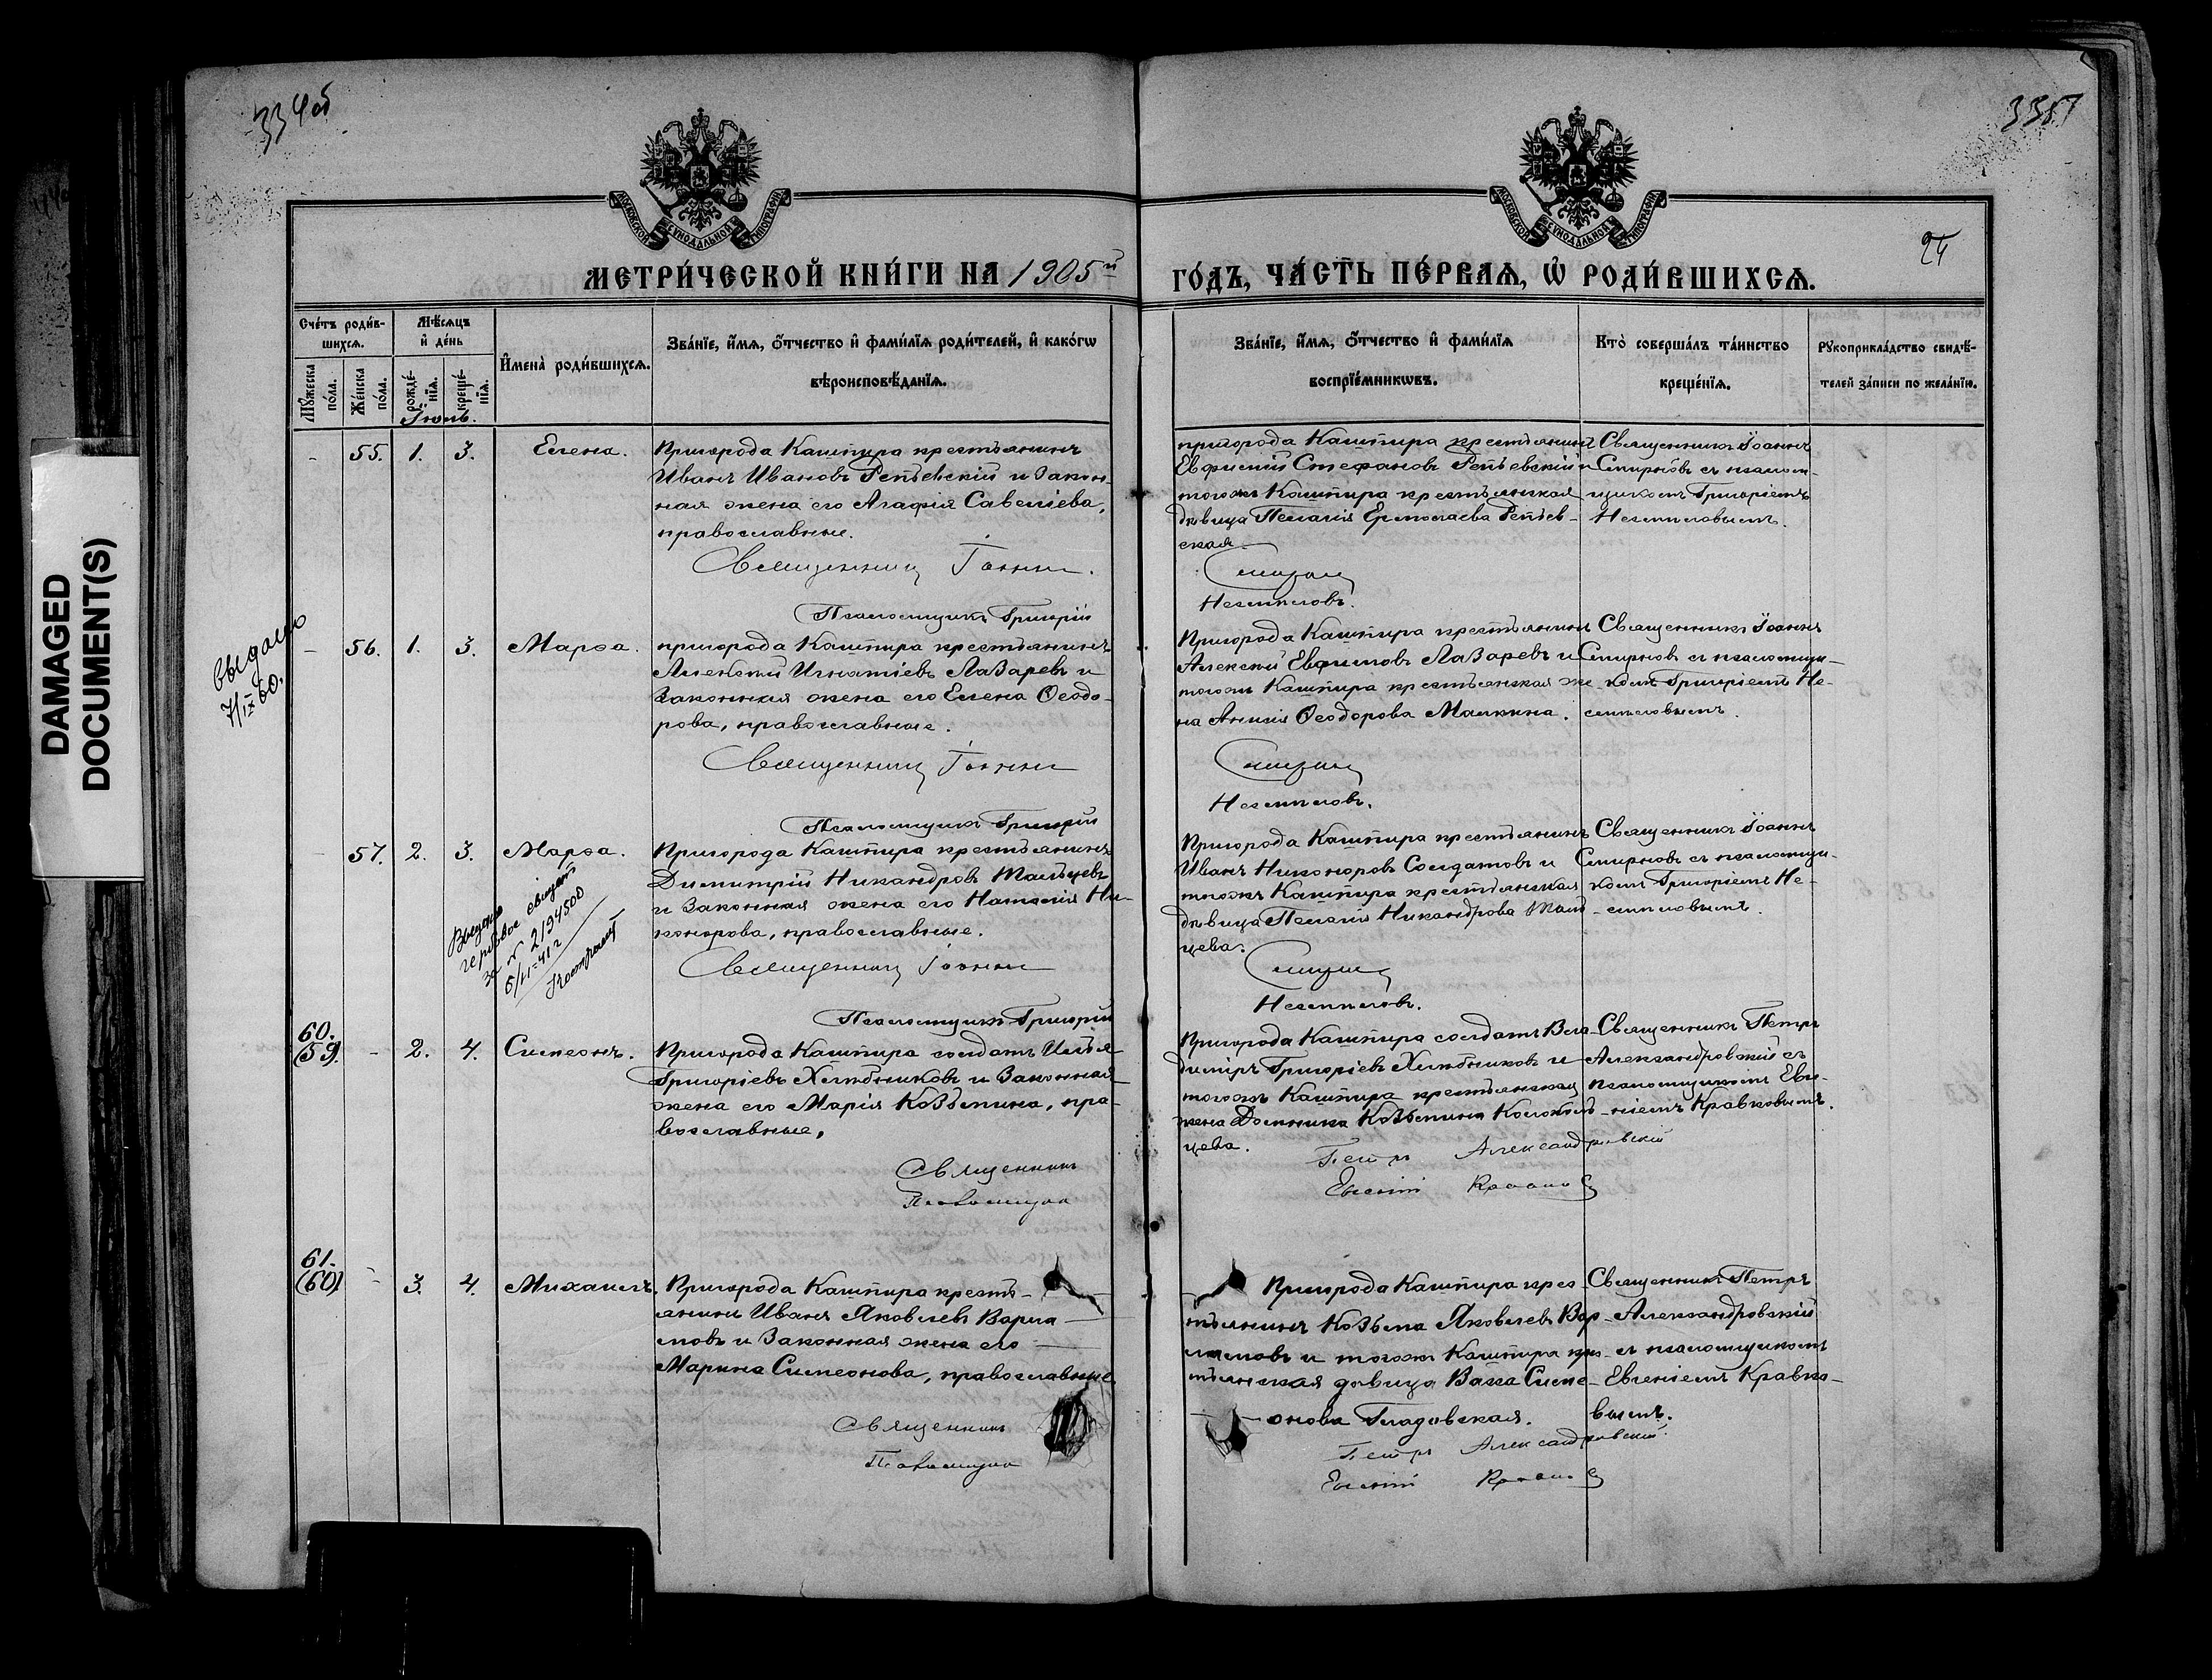 334об
335
24
DAMAGED
DOCUMENT(S)
МОСКОВСКОЙ СѴНОДАЛЬНОЙ ТИПОГРАФІИ
МОСКОВСКОЙ СѴНОДАЛЬНОЙ ТИПОГРАФІИ
МЕТРИ́ЧЕСКОЙ КНИ́ГИ НА 1905й
ГО́ДЪ, ЧА́СТЬ ПЕ́РВАѦ, Ѡ҆ РОДИ́ВШИХСѦ.
Сче́тъ роди́в-
шихсѧ.
Мꙋ́жеска
по́ла.
Же́нска
по́ла.
Мѣ́сѧцъ
и҆ де́нь
рожде́-
нїѧ.
креще́-
нїѧ.
И҆мена̀ роди́вшихсѧ.
Зва́нїе, и҆́мѧ, ѻ҆́тчество и҆ фами́лїѧ роди́телей, и҆ како́гѡ
вѣроисповѣ́данїѧ.
Зва́нїе, и҆́мѧ, ѻ҆́тчество и҆ фами́лїѧ
воспрїе́мникѡвъ.
Кто̀ соверша́лъ та́инство
креще́нїѧ.
Рꙋкоприкла́дство свидѣ́-
телей за́писи по жела́нїю.
Іюль.
- 55. 1. 3. Елена.
Пригорода Кашпира крестьянинъ
Иванъ Ивановъ Репьевскій и закон-
ная жена его Агафія Савеліева,
православные.
Священникъ Іоаннъ
Псаломщикъ Григорій
пригорода Кашпира крестьянинъ
Евфимій Стефановъ Репьевскій и
тогожъ Кашпира крестьянская
дѣвица Пелагія Ермолаева Репьев-
ская.
Смирновъ
Несмеловъ.
Священникъ Іоаннъ
Смирновъ съ псалом-
щикомъ Григоріемъ
Несмеловымъ.
выдано
7/IX 60.
- 56. 1. 3. Марѳа.
пригорода Кашпира крестьянинъ
Алексѣй Игнатіевъ Лазаревъ и
законная жена его Елена Ѳеодо-
рова, православные.
Священникъ Іоаннъ
Псаломщикъ Григорій
Пригорода Кашпира крестьянинъ
Алексѣй Евфимовъ Лазаревъ и
тогожъ Кашпира крестьянская же
на Ѳеодорова Малкина.
Смирновъ
Несмеловъ.
Священникъ Іоаннъ
Смирновъ съ псаломщи-
комъ Григоріемъ Не-
смеловымъ.
- 57. 2. 3. Марѳа.
Выдано
гербовое свидет
за № 2194500
5/VI-41 г
Пригорода Кашпира крестьянинъ
Димитрій Никандровъ Мальцевъ
и законная жена его Наталія Ни-
конорова, православные.
Священникъ Іоаннъ
Псаломщикъ Григорій
Пригорода Кашпира крестьянинъ
Иванъ Никоноровъ Солдатовъ и
тогожъ Кашпира крестьянская
дѣвица Пелагія Никандрова Маль-
цева.
Смирновъ
Несмеловъ.
Священникъ Іоаннъ
Смирновъ съ псаломщи-
комъ Григоріемъ Не-
смеловымъ.
60.
(59). - 2. 4. Симеонъ.
Пригорода Кашпира солдатъ Илья
Григоріевъ Хлѣбниковъ и законная
жена его Марія Козьмина, пра-
вославные.
Священникъ
Псаломщикъ
Пригорода Кашпира солдатъ Вла-
диміръ Григоріевъ Хлѣбниковъ и
тогожъ Кашпира крестьянская
жена Домника Козьмина Колоколь-
цева.
Петръ Александровскій
Евгеній Кравковъ
Священникъ Петръ
Александровскій съ
псаломщикомъ Евге-
ніемъ Кравковымъ.
61.
(60) - 3. 4. Михаилъ.
Пригорода Кашпира кресть-
янинъ Иванъ Яковлевъ Варла-
мовъ и законная жена его
Марина Симеонова, православные.
Священникъ
Псаломщикъ
Пригорода Кашпира крес-
тьянинъ Козьма Яковлевъ Вар-
ламовъ и тогожъ Кашпира кре-
стьянская дѣвица Васса Симе-
онова Гладовская.
Петръ Александровскій
Евгеній Кравковъ
Священникъ Петръ
Александровскій
съ псаломщикомъ
Евгеніемъ Кравко-
вымъ.